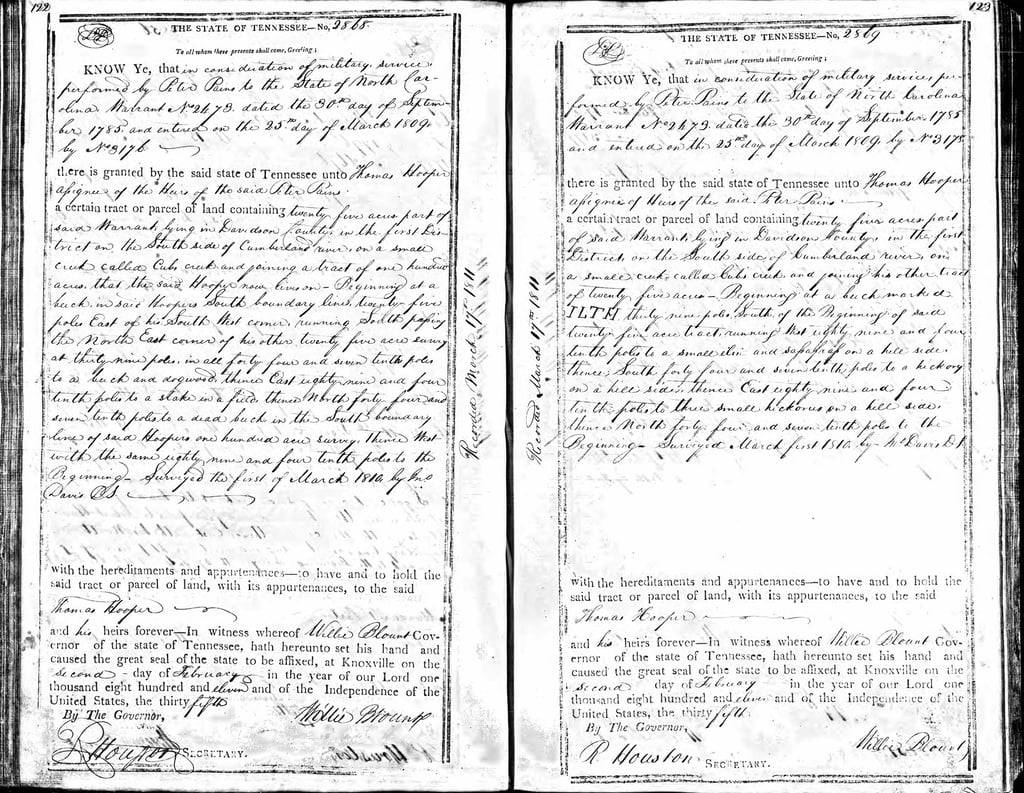 122
THE STATE OF TENNESSEE—No, 2868.
To all whom these presents shall come, Greeting;
KNOW Ye, that in consideration of military service
performed by Peter Pains to the State of North Car-
olina Warrant No 2473. dated the 30th day of Septem-
ber 1785. and entered on the 25th day of March 1809.
by No 3176
there is granted by the said state of Tennessee unto Thomas Hooper
assignee of the Heirs of the said Peter Pains.
a certain tract or parcel of land containing twenty five acres part of
said Warrant, lying in Davidson County, in the first Dis-
trict on the South side of Cumberland river, on a small
creek called Cubs creek and joining a tract of one hundred
acres that the said Hooper now lives on — Beginning at a
buch in said Hoopers South boundary line, twenty-five
poles East of his South West corner, running South passing
the North East corner of his other twenty five acre survey
at thirty nine poles, in all forty four and seven tenth poles
to a buch and dogwood, thence East eighty nine and four
tenth poles to a stake in a field, thence North forty four and
seven tenth poles to a dead buch in the South boundary
line of said Hoopers one hundred acre survey, thence West
with the same eighty nine and four tenth poles to the
Beginning— Surveyed the first of March 1810, by Jno
Davis DS
with the hereditaments and appurtenances—to have and to hold the
said tract or parcel of land, with its appurtenances, to the said
Thomas Hooper
and his heirs forever—In witness whereof Willie Blount Gov-
ernor of the state of Tennessee, hath hereunto set his hand and
caused the great seal of the state to be affixed, at Knoxville on the
second - day of February in the year of our Lord one
thousand eight hundred and eleven and of the Independence of the
United States, the thirty fifth
By The Governor, Willie Blount
R Houston SECRETARY.
Recorded March 17th 1811
123
THE STATE OF TENNESSEE—No, 2869
To all whom these presents shall come, Greeting;
KNOW Ye, that in consideration of military service, per-
formed by Peter Pains to the State of North Carolina
Warrant No 2473. dated the 30th day of September 1785
and entered on the 25th day of March 1809. by No 3175
there is granted by the said state of Tennessee unto Thomas Hooper
assignee of Heirs of the said Peter Pains.
a certain tract or parcel of land containing twenty five acres part
of said Warrant, lying in Davidson County, in the first
District, on the South side of Cumberland river, on
a small creek, called Cubs creek and joining his other tract
of twenty five acres — Beginning at a buch marked
ILTH thirty nine poles South of the Beginning of said
twenty five acre tract, running West eighty nine and four
tenth poles to a small elm and sassafras on a hill side,
thence South forty four and seven tenth poles to a hickory
on a hill side, thence East eighty nine and four
tenth poles to three small hickories on a hill side,
thence North forty four and seven tenth poles to the
Beginning— Surveyed March first 1810. by Davis D.S.
Recorded March 17th 1811
with the hereditaments and appurtenances—to have and to hold the
said tract or parcel of land, with its appurtenances, to the said
Thomas Hooper
and his heirs forever—In witness whereof Willie Blount Gov-
ernor of the state of Tennessee, hath hereunto set his hand and
caused the great seal of the state to be affixed, at Knoxville on the
second day of February in the year of our Lord one
thousand eight hundred and eleven and of the Independence of the
United States, the thirty fifth.
By The Governor,
Willie Blount
R Houston SECRETARY.